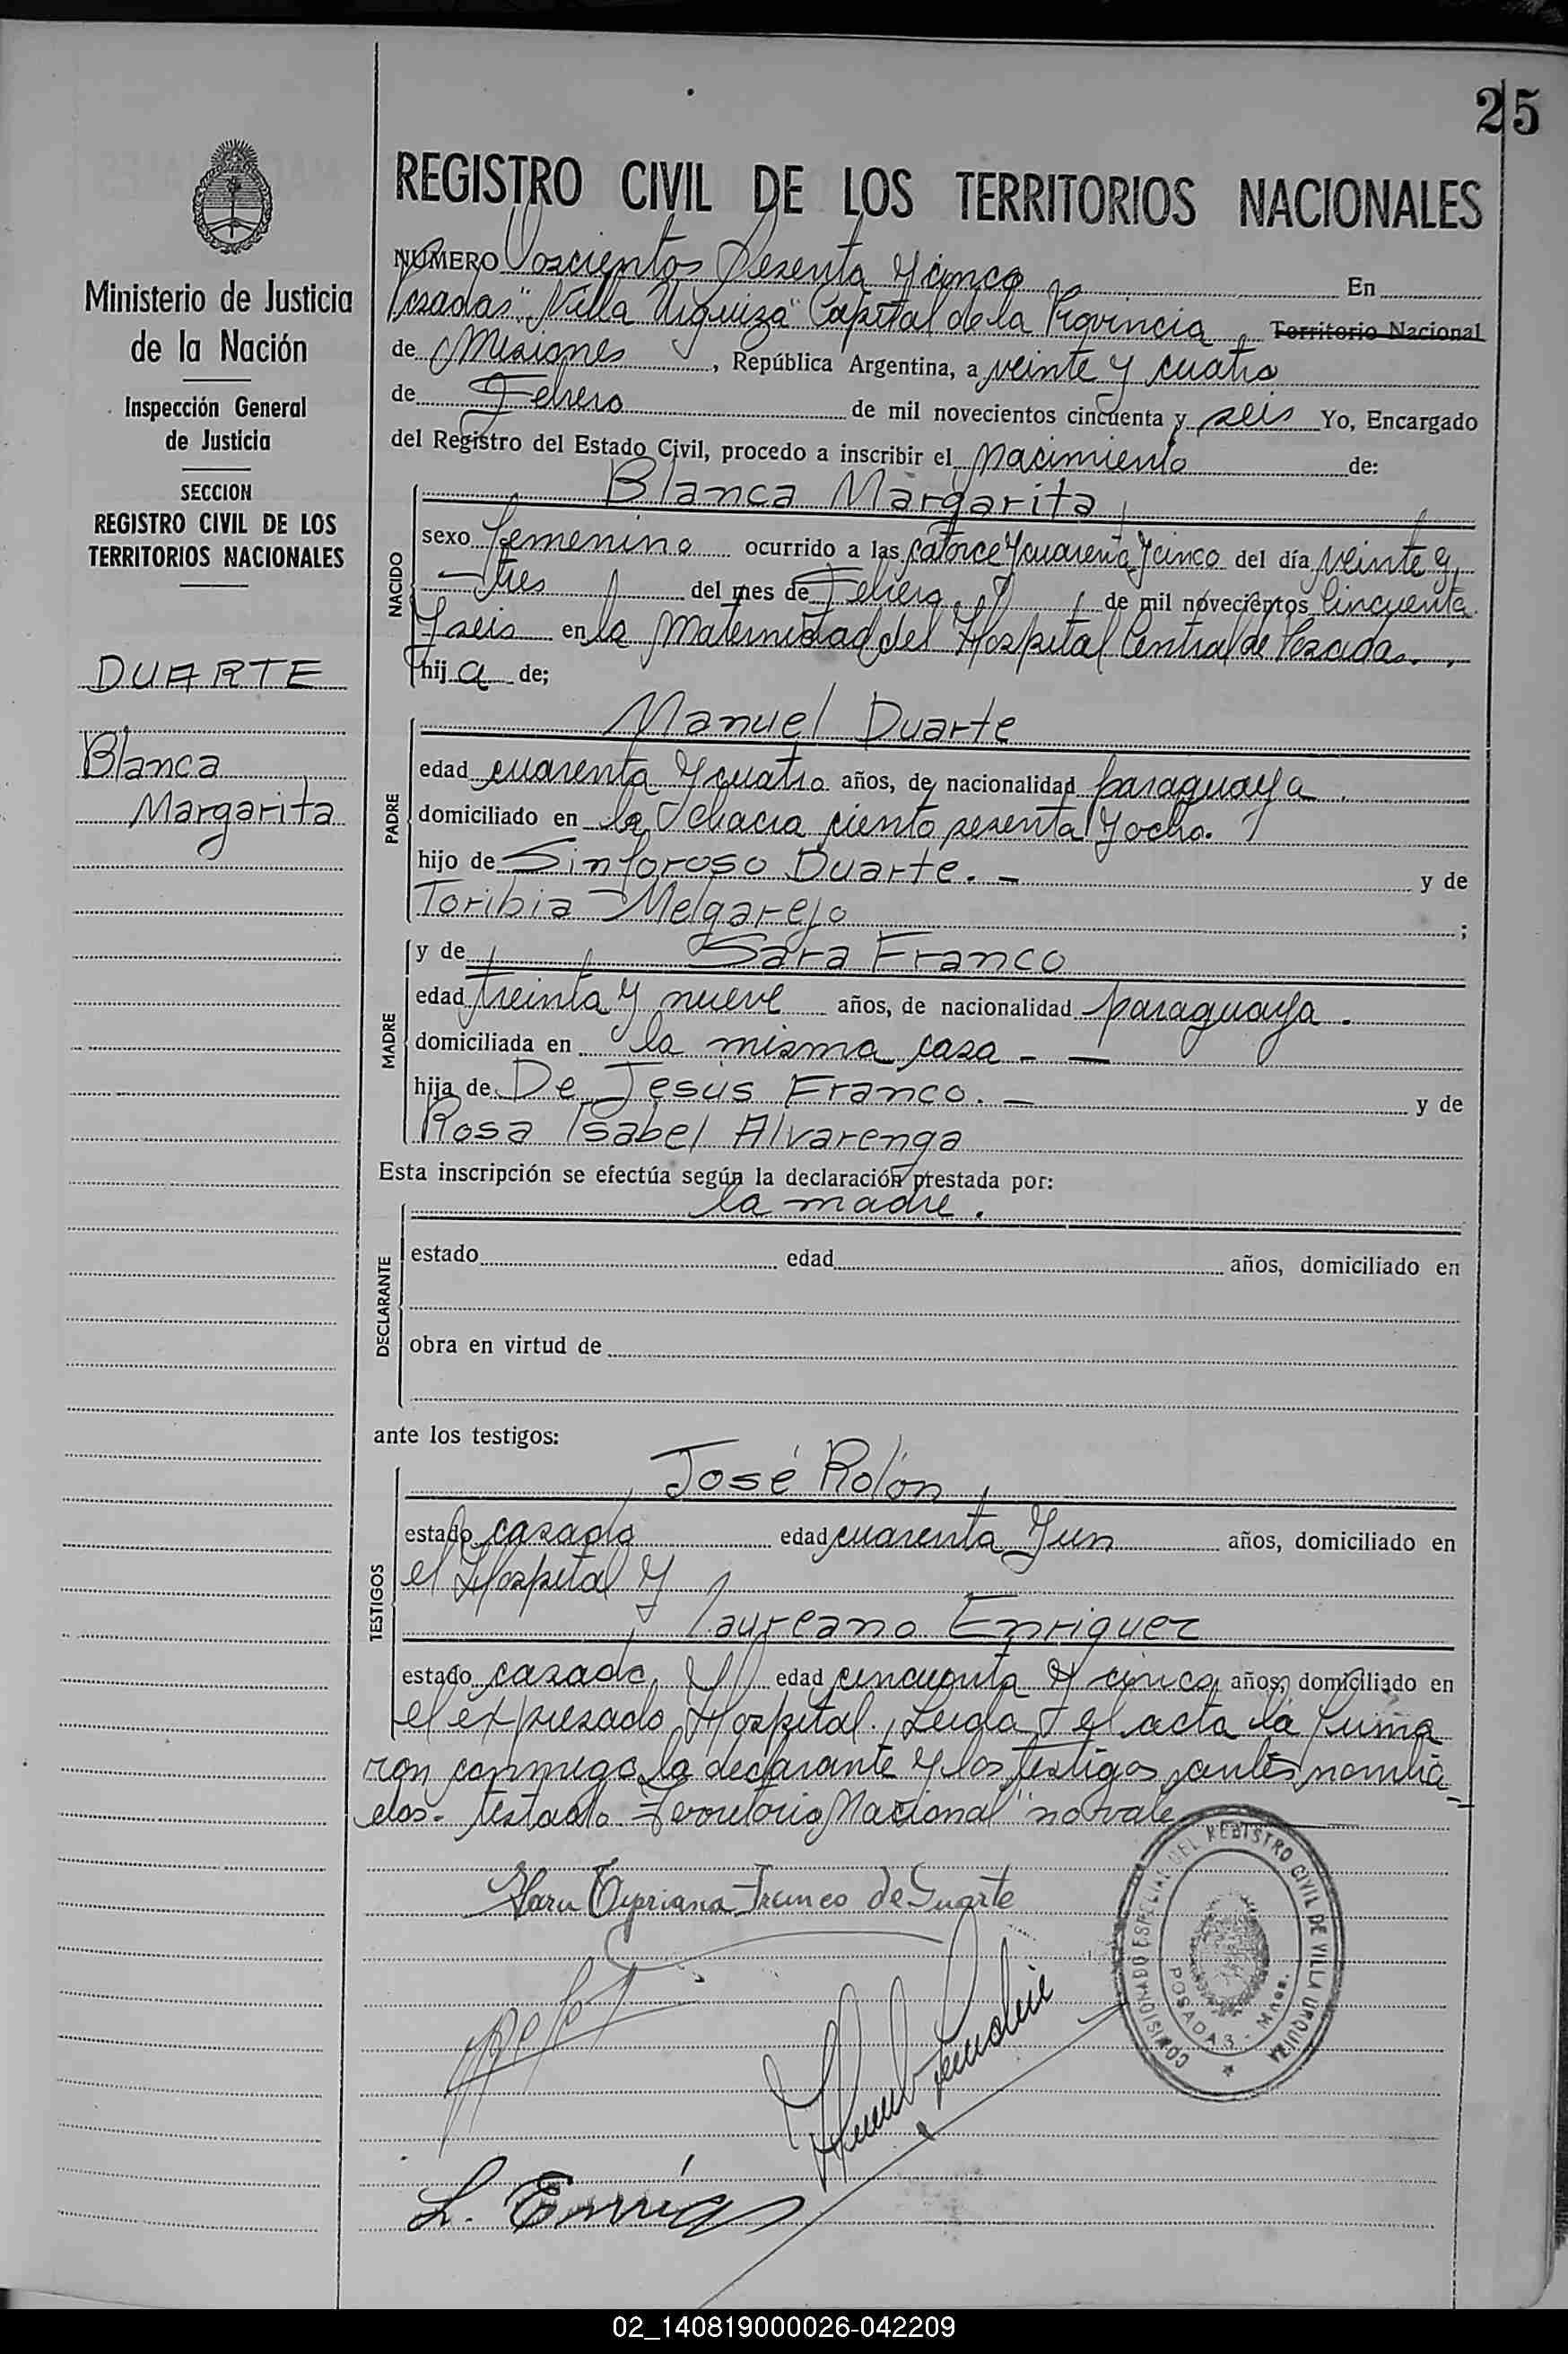 25
REGISTRO CIVIL DE LOS TERRITORIOS NACIONALES
Ministerio de Justicia
de la Nación
Inspección General
de Justicia
SECCION
REGISTRO CIVIL DE LOS
TERRITORIOS NACIONALES
DUARTE
Blanca
Margarita
NUMERO Doscientos Sesenta y cinco En
Posadas "Villa Urquiza" Capital de la Provincia Territorio Nacional
de Misiones, República Argentina, a veinte y cuatro
de Febrero de mil novecientos cincuenta y seis Yo, Encargado
del Registro del Estado Civil, procedo a inscribir el nacimiento de:
NACIDO
Blanca Margarita
sexo femenino ocurrido a las catorce y cuarenta y cinco del día veinte y
tres del mes de Febrero de mil novecientos cincuenta
y seis en la Maternidad del Hospital Central de Posadas.
hija de;
PADRE
Manuel Duarte
edad cuarenta y cuatro años, de nacionalidad paraguaya
domiciliado en la chacra ciento sesenta y ocho.
hijo de Sinforoso Duarte. - y de
Toribia Melgarejo ;
MADRE
y de Sara Franco
edad treinta y nueve años, de nacionalidad paraguaya.
domiciliada en la misma casa - —
hija de De Jesús Franco. - y de
Rosa Isabel Alvarenga
Esta inscripción se efectúa según la declaración prestada por:
DECLARANTE
la madre.
estado edad años, domiciliado en
obra en virtud de
ante los testigos:
TESTIGOS
José Rolón
estado casado edad cuarenta y un años, domiciliado en
el Hospital y
Laureano Enriquez
estado casado, y edad cincuenta y cinco años, domiciliado en
el expresado Hospital. Leida el acta la firma
ron conmigo la declarante y los testigos antes nombra-
dos.- testado "Territorio Nacional" no vale
Sara Cipriana Franco de Duarte
L. Enríq
COMISIONADO ESPECIAL DEL REGISTRO CIVIL DE VILLA URQUIZA
POSADAS - Mnes.
02_140819000026-042209